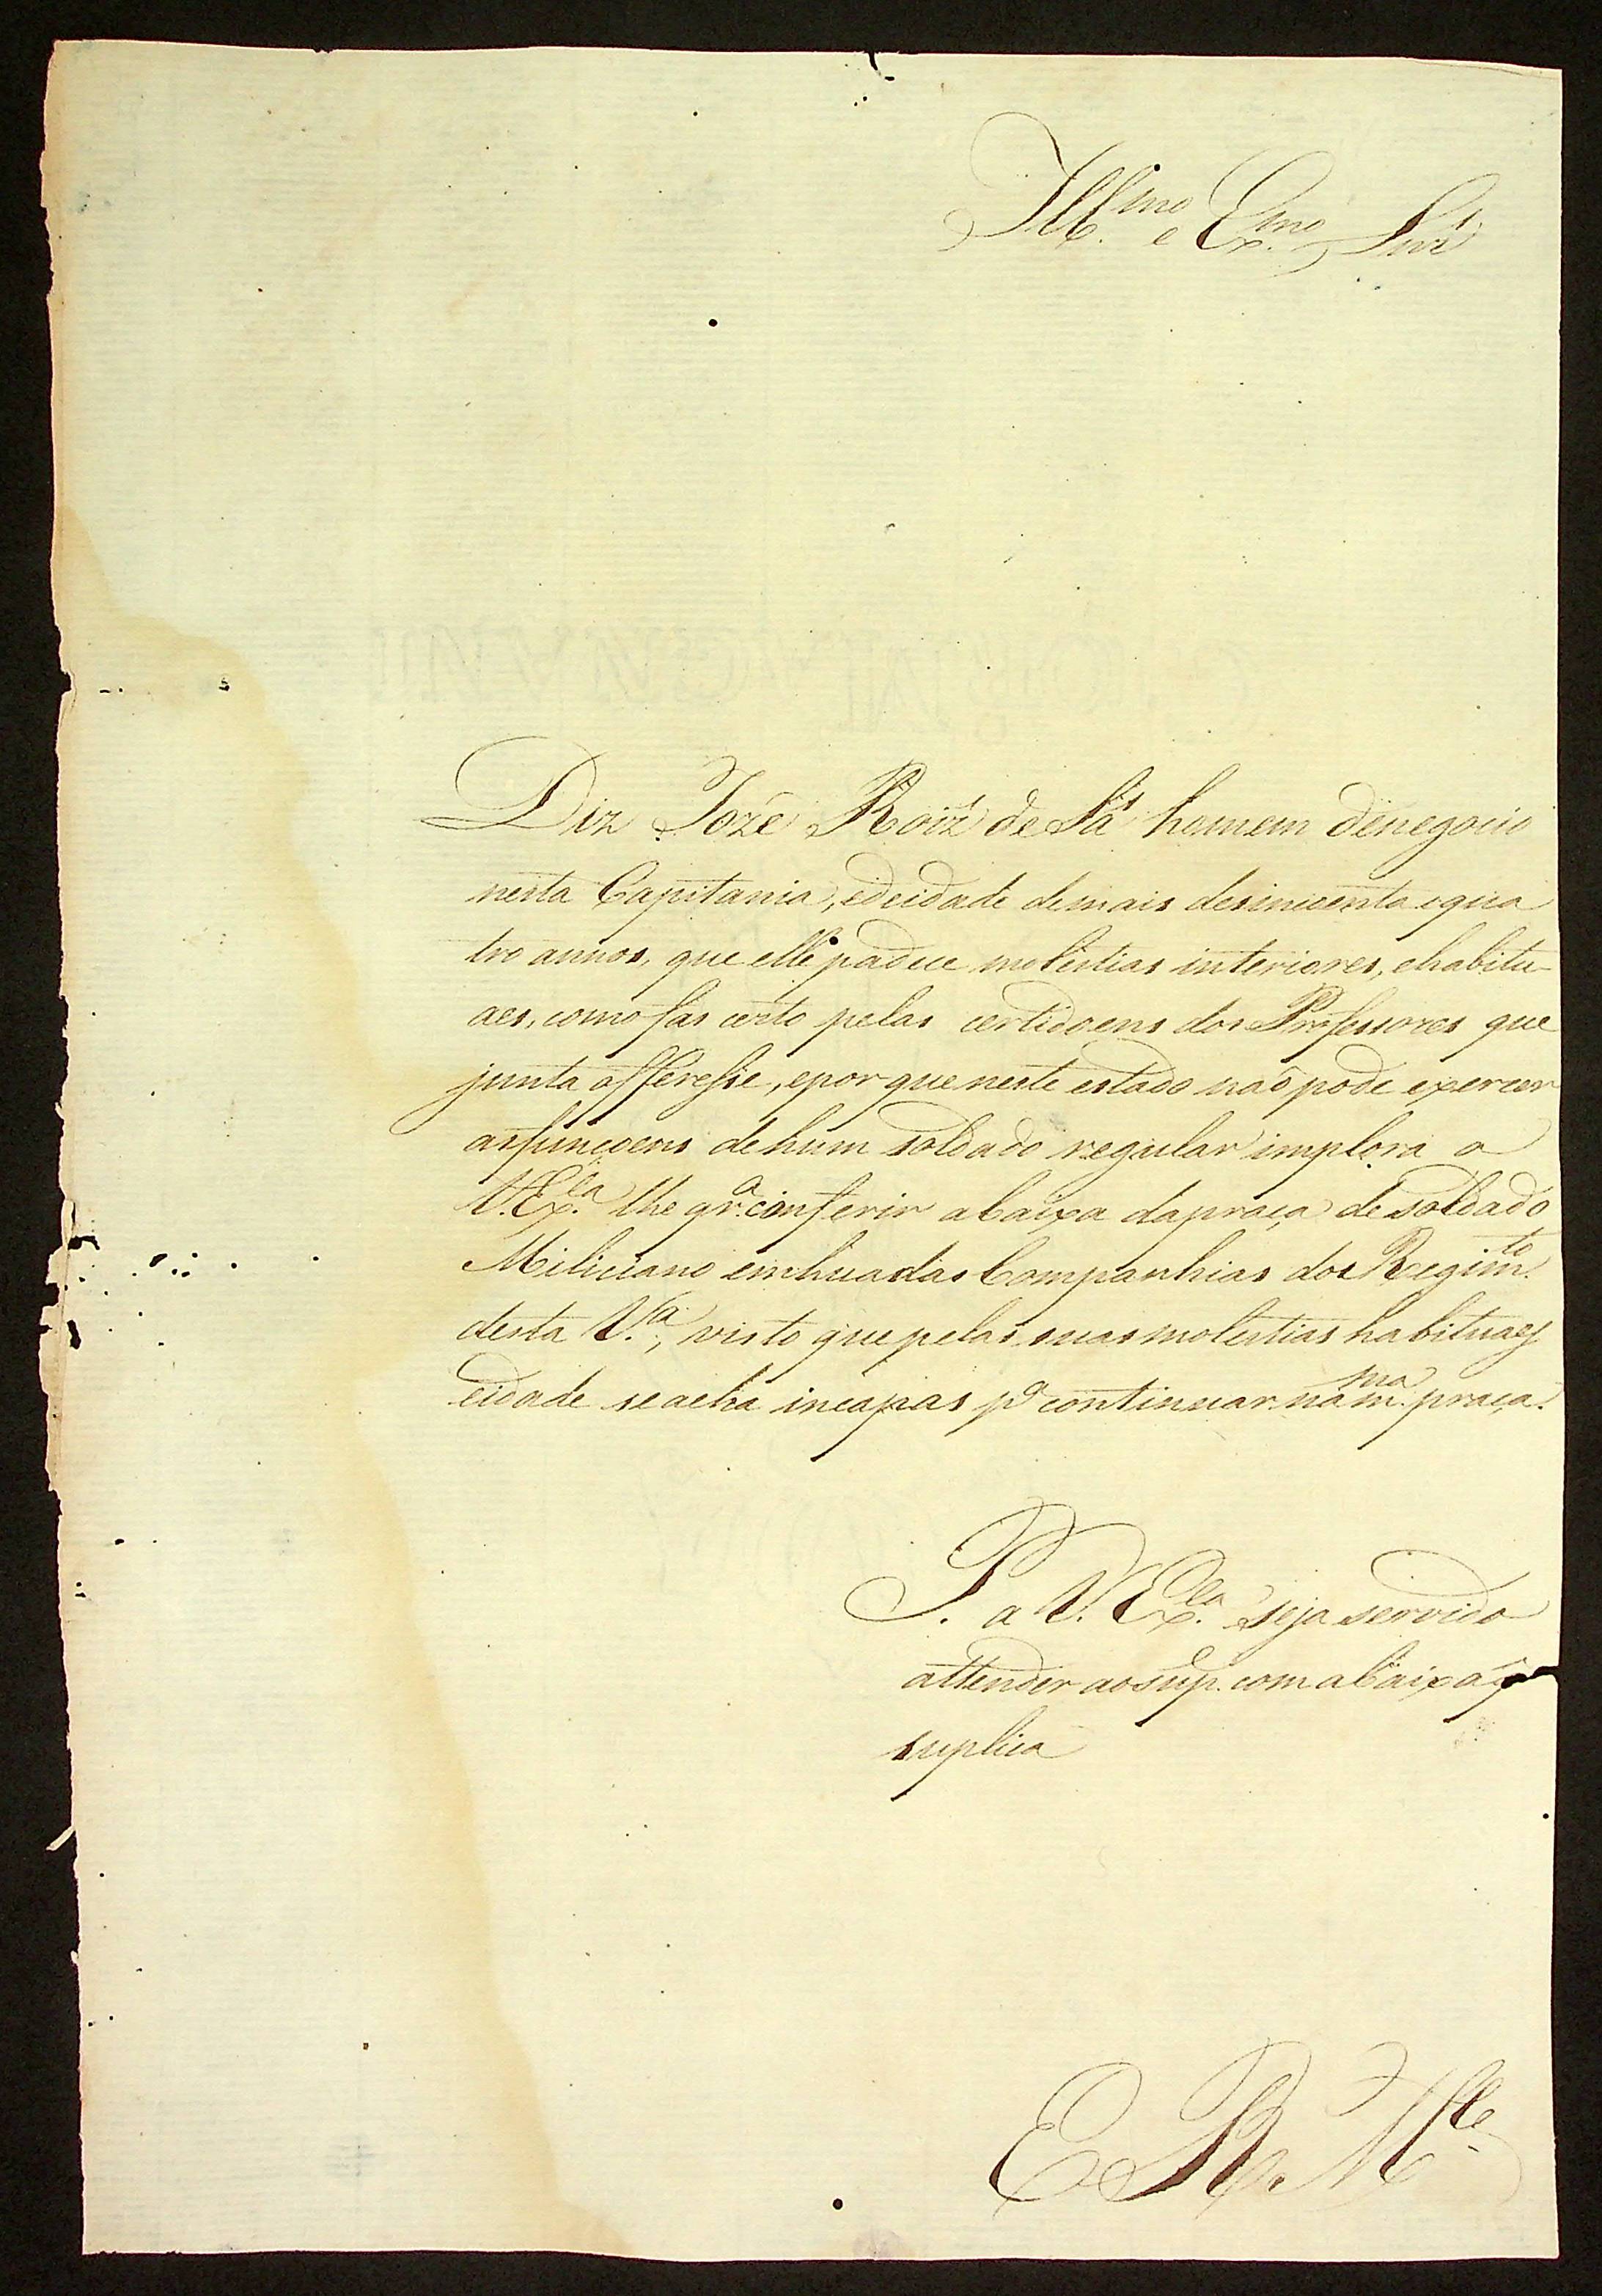 Ill.mo e Ex.mo Snr.
Diz Jozé Roiz' de Sá homem denegocio
nesta Capitania, edeidade demais desincoenta equa
tro annos, que elle padece molestias interiores, ehabitu-
aes, como fás certo pelas certidoens dos Professores que
junta offeresse, eporque neste estado naõ pode exercer
asfuncoens dehum soldado regular implora a
V. Ex.cia lhe qr.a conferir abaixa dapraça de soldado
Miliciano emhuadas Companhias dos Regim.to
desta V.a, visto que pelas suas molestias habituaes
eidade seacha incapas p.a continuar na m.ma praça.
P. a V. Ex.cia seja servido
attender aosup.e com abaixa q
suplica
E. R. M.ce